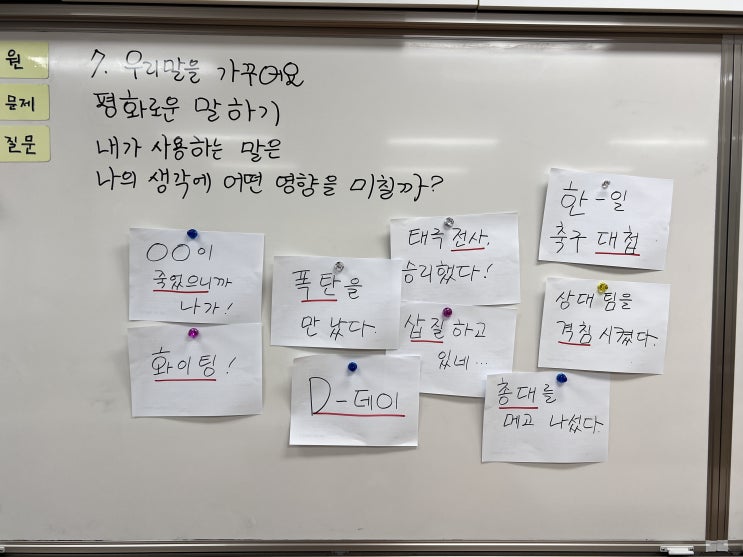 원
문제
질문
7. 우리말을 가꾸어요
평화로운 말하기
내가 사용하는 말은
나의 생각에 어떤 영향을 미칠까?
○○이
죽었으니까
나가!
화이팅!
폭탄을
만났다.
D-데이
태극 전사,
승리했다!
삽질하고
있네…
한-일
축구 대첩
상대 팀을
격침 시켰다.
총대를
메고 나섰다.